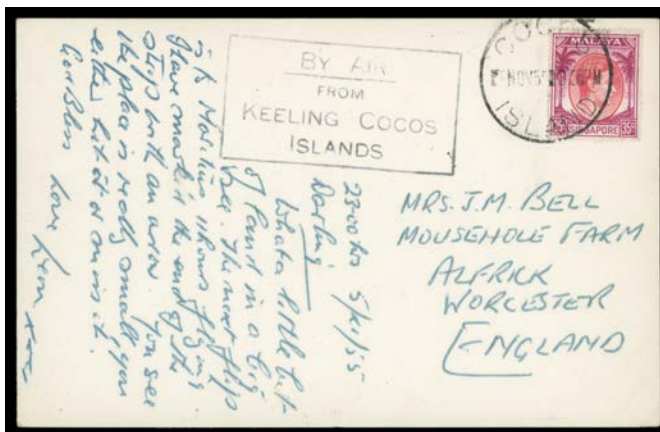 BY AIR
FROM
KEELING COCOS
ISLANDS
COCOS
NOV 5
ISLAND
MALAYA
SINGAPORE
35c
MRS. J. M. BELL
MOUSEHOLE FARM
ALFRICK
WORCESTER
ENGLAND
2300 hrs 5/11/55
Darling
What a little bit
of land in a big
sea. The next flip
is to Mauritius 11 hours flying
I have marked the end of the
strip with an arrow. You see
the place is really small, you
either hit it or miss it.
God Bless Love Leon xxx